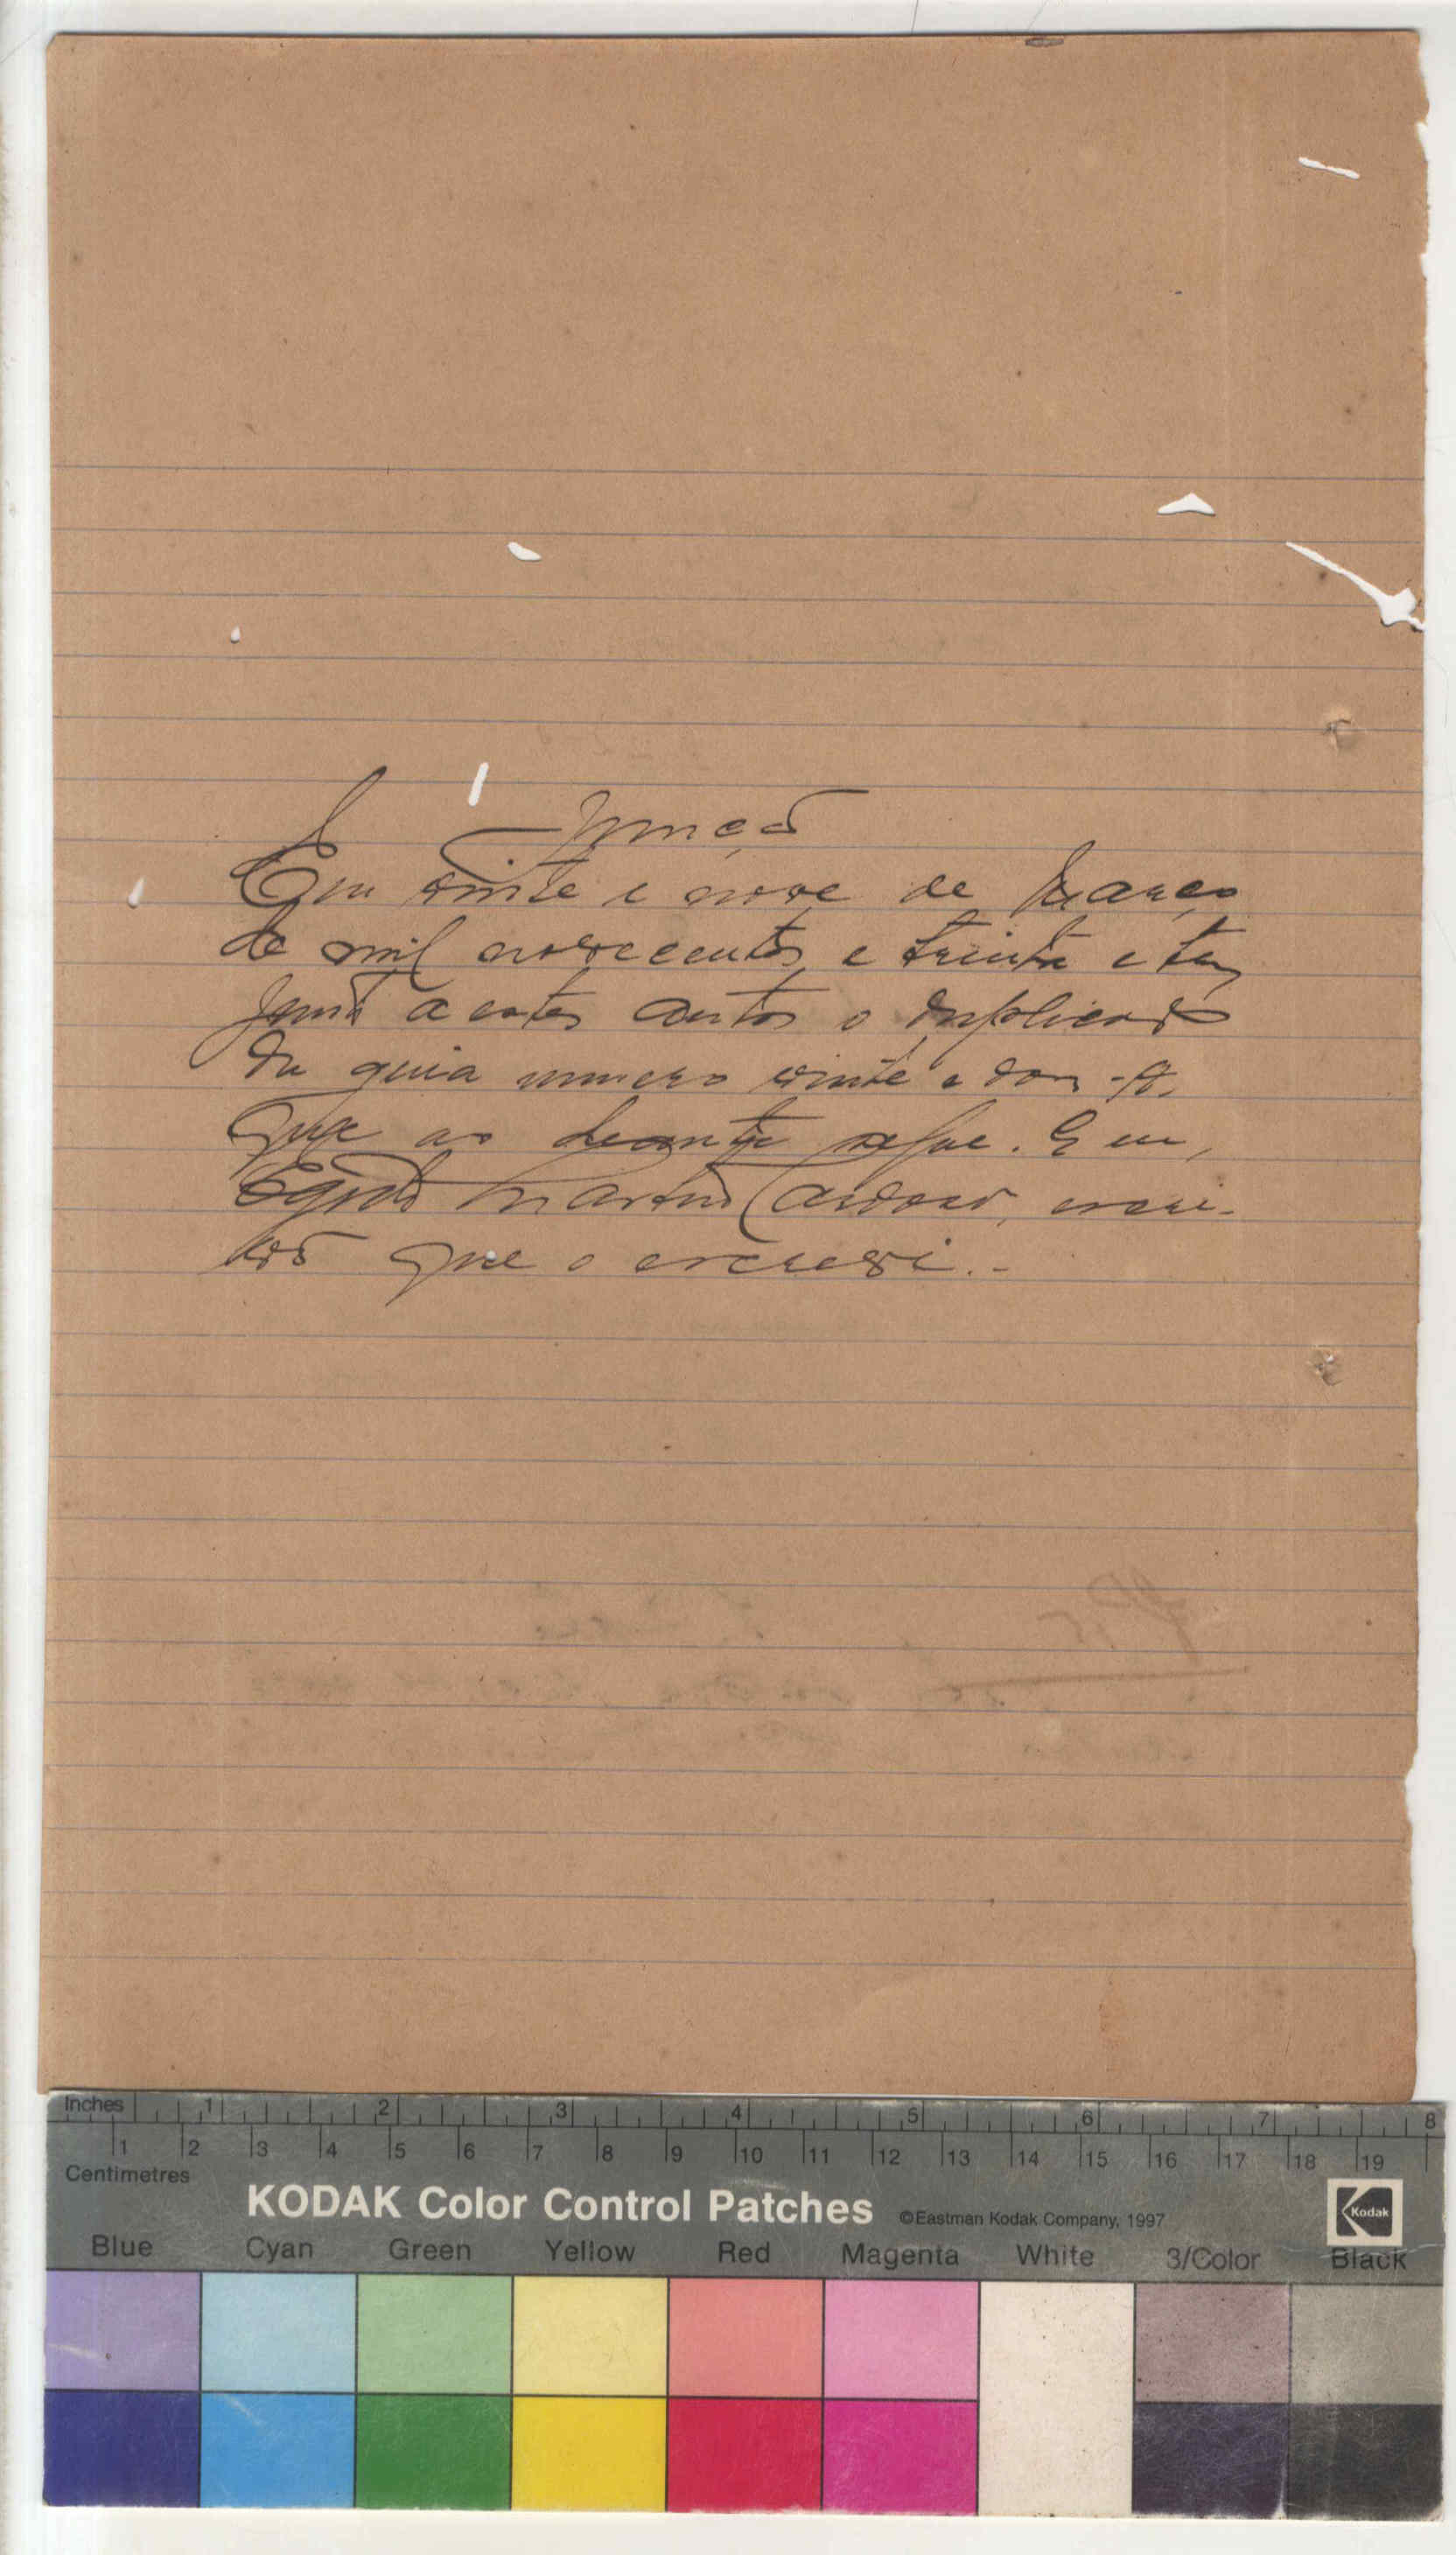 Junção
Em vinte e nove de Março
de mil novecentos e trinta e tres
junto a estes autos o duplicado
da guia numero vinte e dois
que ao deante segue. Eu,
Egydio Martins Cardoso, escri-
vão que o escrevi.-
Inches 1 2 3 4 5 6 7 8
1 2 3 4 5 6 7 8 9 10 11 12 13 14 15 16 17 18 19
Centimetres
KODAK Color Control Patches ©Eastman Kodak Company, 1997 Kodak
Blue Cyan Green Yellow Red Magenta White 3/Color Black